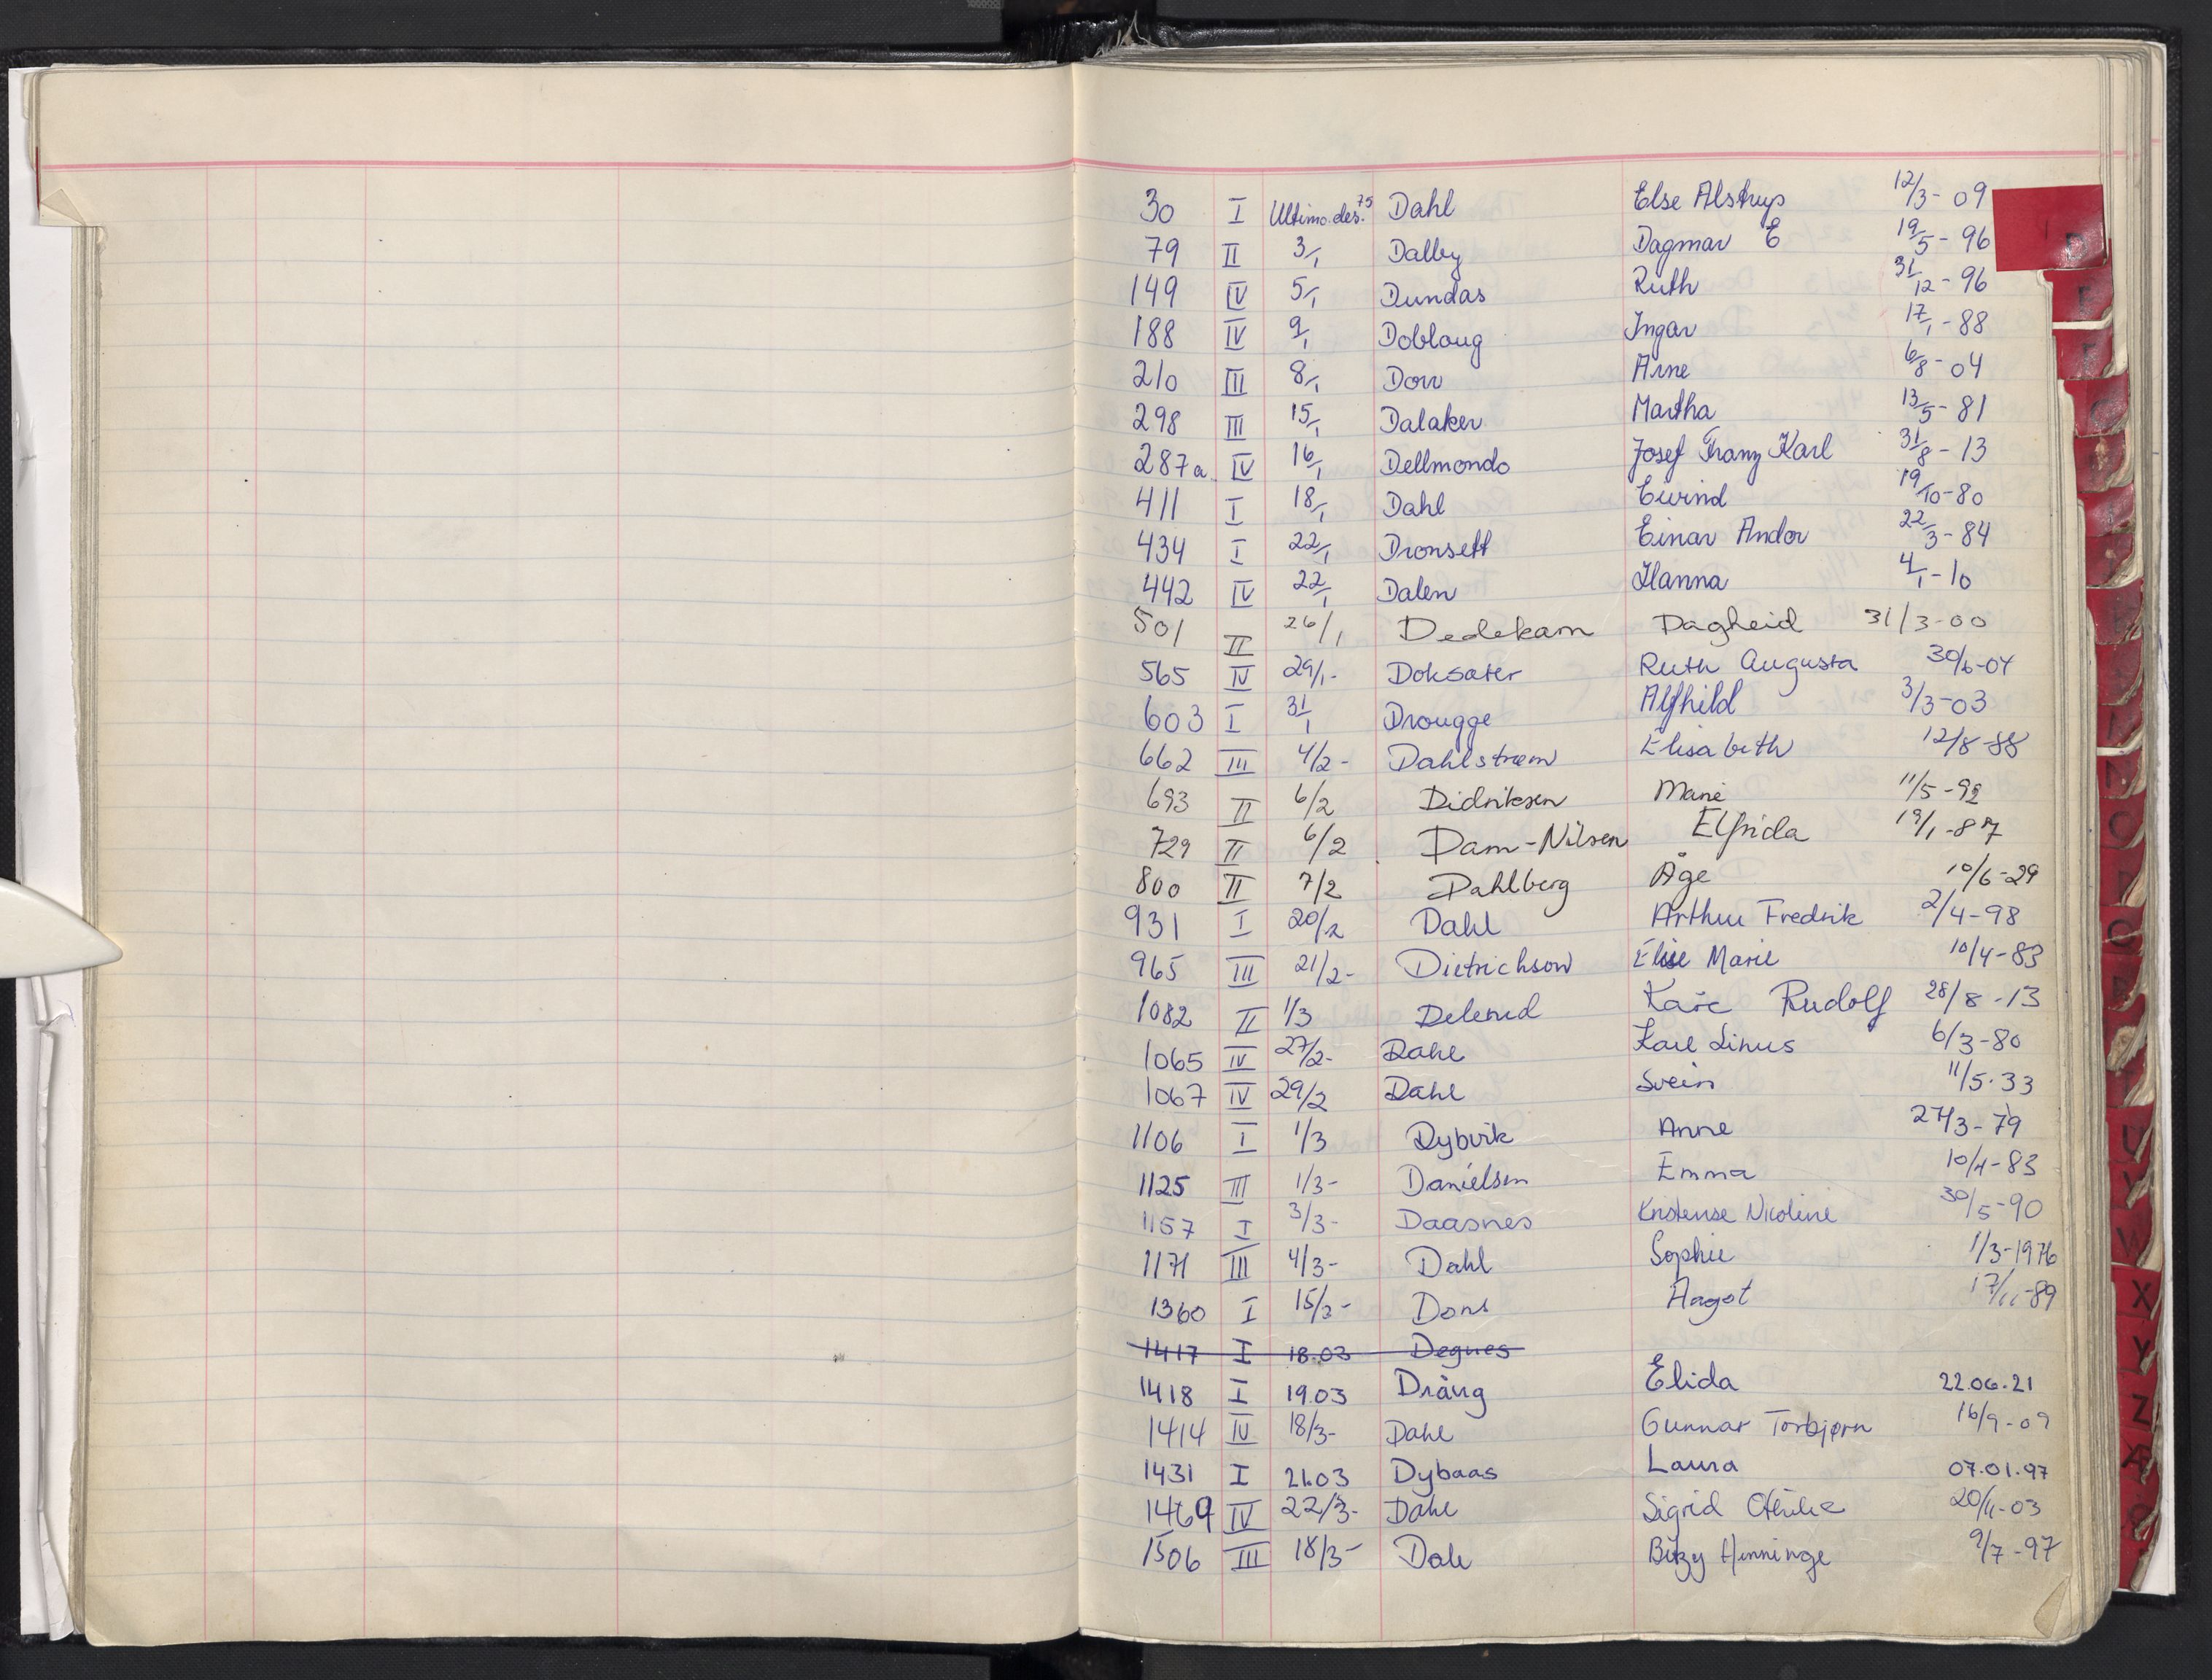 30 I Ultimo des. 75 Dahl Else Alstrup 12/3-09
79 II 3/1 Dalby Dagmar E 19/5-96
149 IV 5/1 Dundas Ruth 31/12-96
188 IV 9/1 Dobloug Ingar 17/1-88
210 III 8/1 Dorr Arne 6/8-04
298 III 15/1 Dalaker Martha 13/5-81
287a IV 16/1 Dellmondo Josef Franz Karl 31/8-13
411 I 18/1 Dahl Eivind 19/10-80
434 I 22/1 Dronsett Einar Andor 22/3-84
442 IV 22/1 Dalen Hanna 4/1-10
501 II 26/1 Dedekam Dagheid 31/3-00
565 IV 29/1- Doksater Ruth Augusta 30/6-04
603 I 31/1 Drougge Alfhild 3/3-03
662 III 4/2- Dahlstrøm Elisabeth 12/8-88
693 II 6/2 Didriksen Marie 11/5-92
729 II 6/2 Dam-Nilsen Elfrida 19/1-87
800 II 7/2 Dahlberg Åge 10/6-29
931 I 20/2 Dahl Arthur Fredrik 2/4-98
965 III 21/2- Dietrichson Elise Marie 10/4-83
1082 II 1/3 Delerud Kåre Rudolf 28/8-13
1065 IV 27/2- Dahl Karl Linus 6/3-80
1067 IV 29/2 Dahl Svein 11/5.33
1106 I 1/3 Dybvik Anne 27/3-79
1125 III 1/3- Danielsen Emma 10/4-83
1157 I 3/3- Daasnes Kristense Nicoline 30/5-90
1171 III 4/3- Dahl Sophie 1/3-1976
1360 I 15/3- Dons Aagot 17/11-89
1417 I 18.03 Degnes
1418 I 19.03 Dräng Elida 22.06.21
1414 IV 18/3- Dahl Gunnar Torbjørn 16/9-09
1431 I 21.03 Dybaas Laura 07.01.97
1469 IV 22/3- Dahl Sigrid Othilie 20/11-03
1506 III 18/3- Dale Henninge 9/7-97
D
E
F
G
N
O
P
Q
R
U
V
W
X
Y
Z